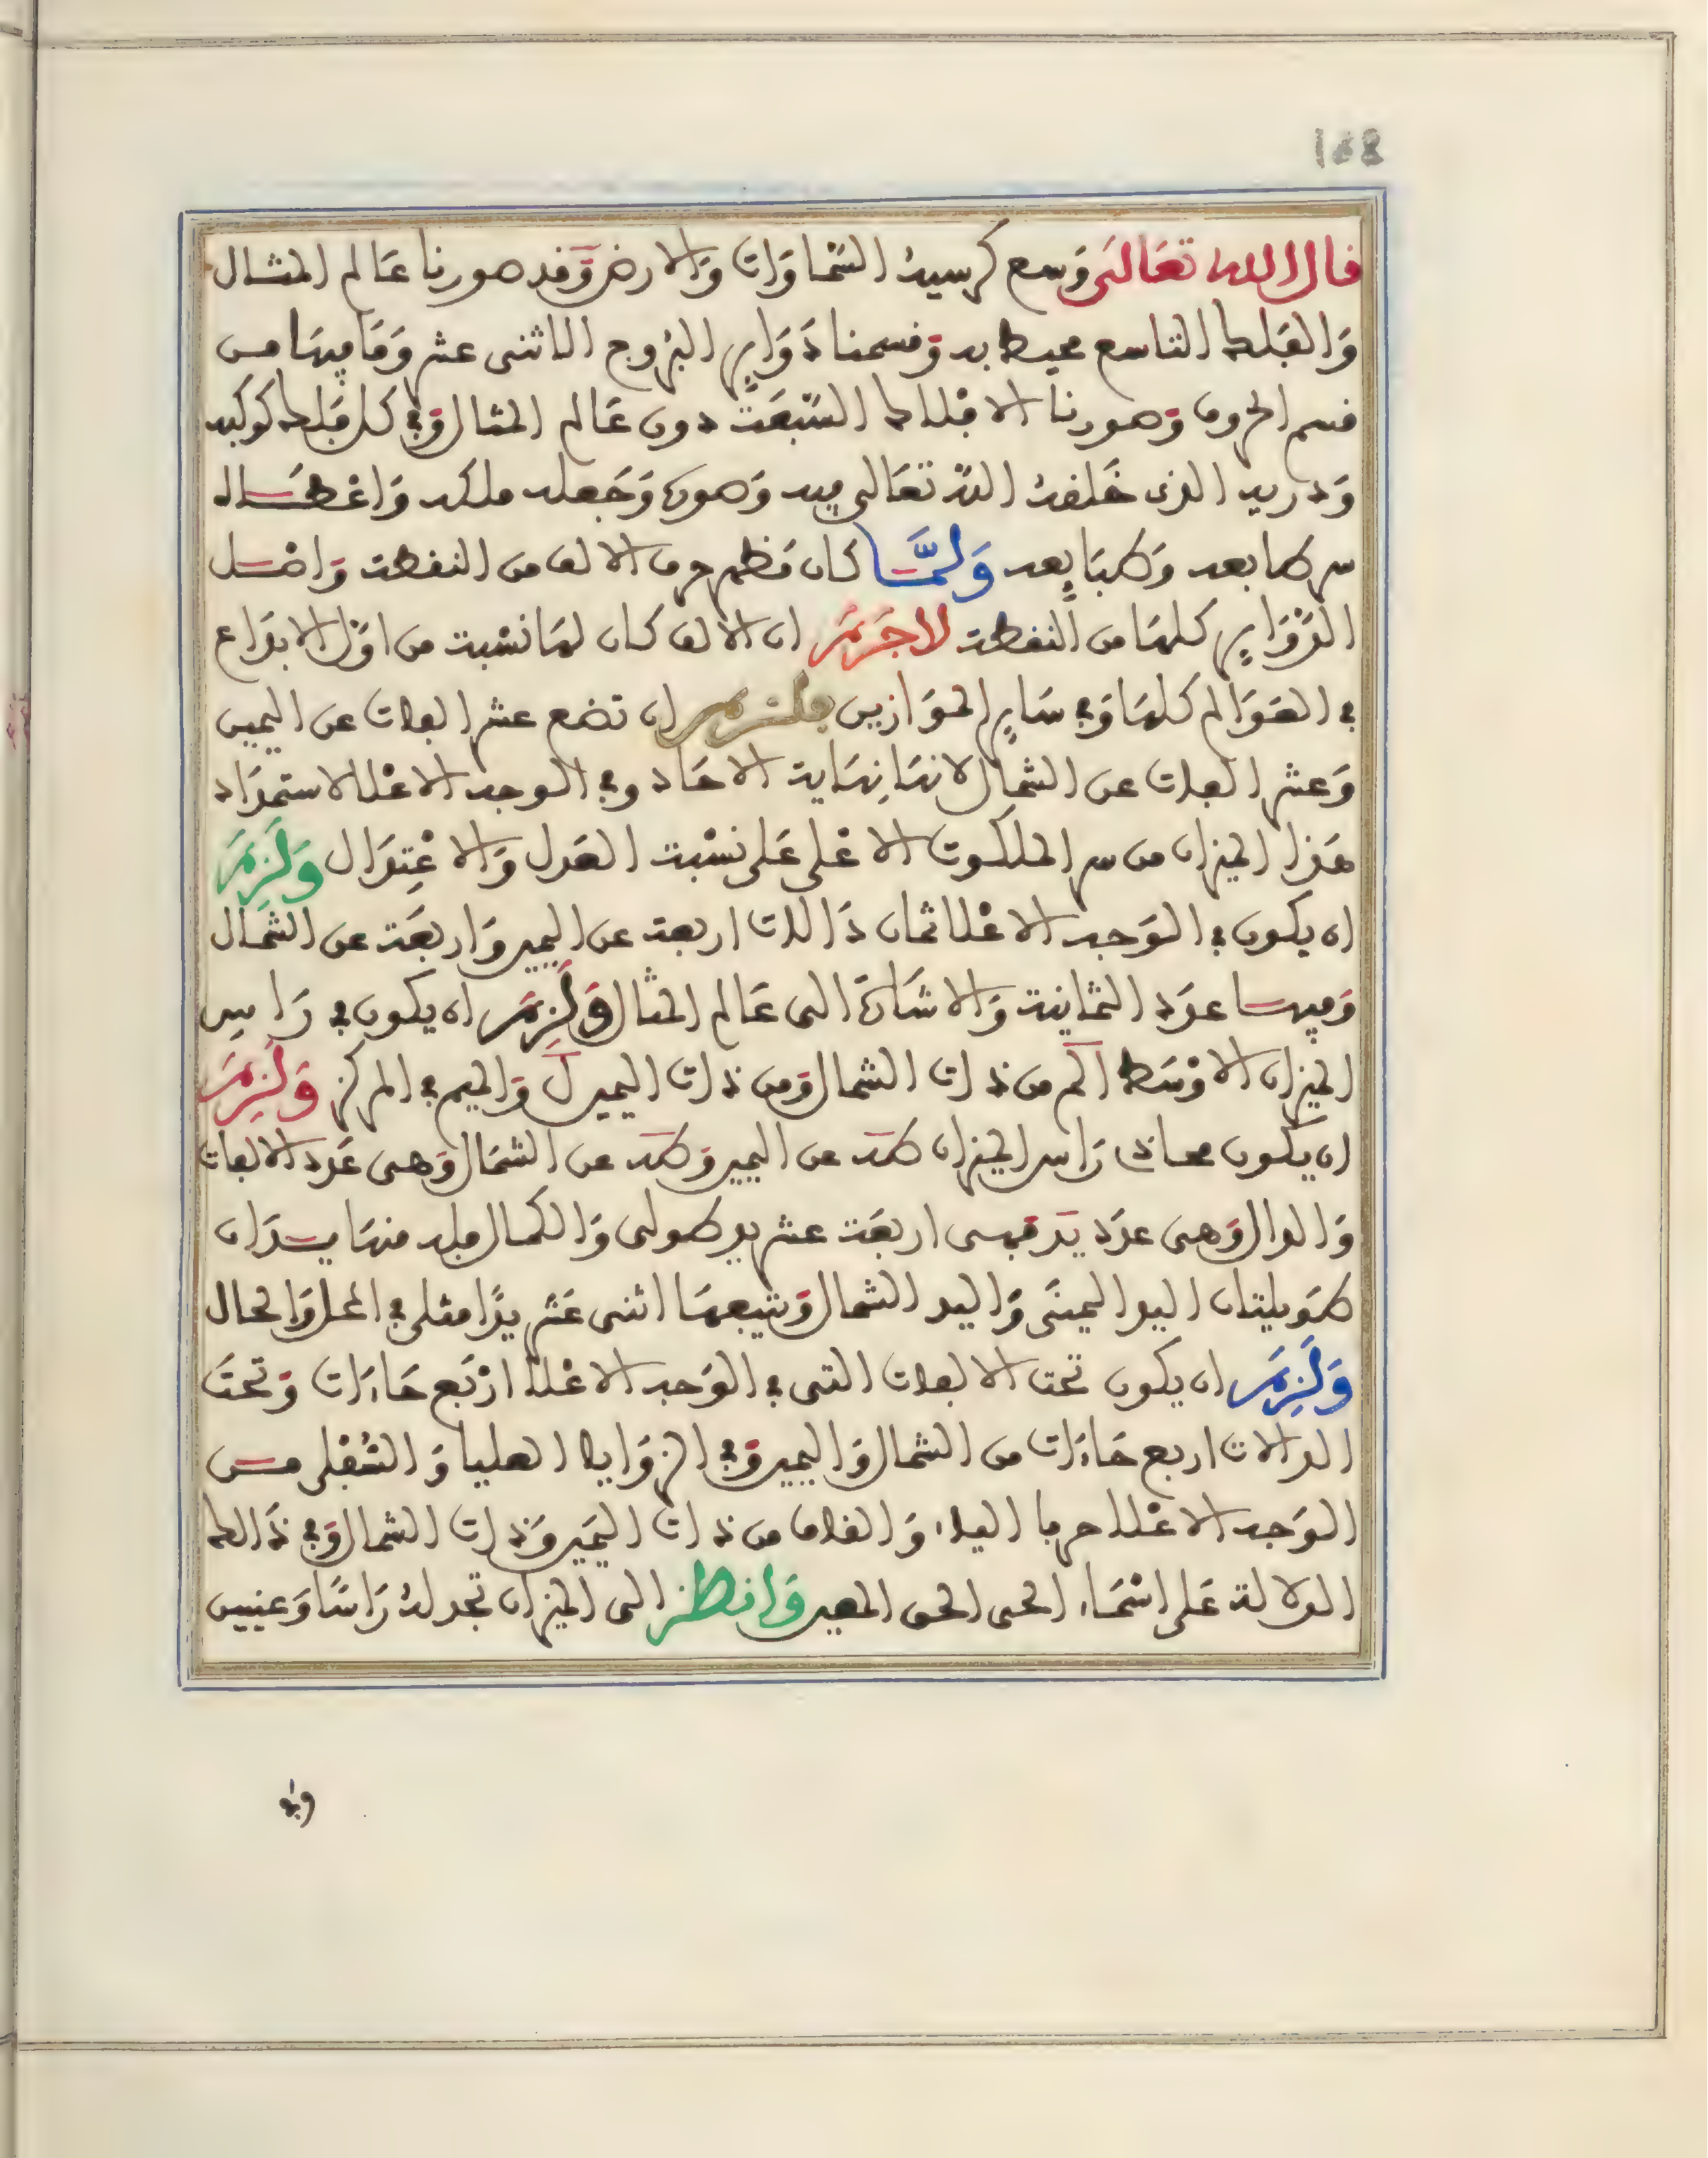 168
قال الله تعالى وَسع كرسيهُ السّماوَات وَالارض وَقد صورنا عَالم المثال
وَالفَلك التاسع محيط به وَقسمنا دَوَاير البُروج الاثنى عشر وَمَا فيهَا من
قسم الحروف وَصورنا الافْلاك السّبعَة دون عَالم المثال وَفي كل فَلك كوكبه
وَدريه الذى خَلقهُ اللهُ تعَالى فيه وَصوره وَجَعله ملكه وَاعْطَاه
سر طابعه وَطبَايعه وَلمَّا كان مَظهر حرف الالف من النقطة وَاصْل
الدّوَاير كلهَا من النقطة لاجَرَمَ ان الالف كان لهَا نسْبة من اوّل الابدَاع
في العَوَالم كلهَا وَفي سَاير الموَازين فلزم ان تضع عشر الفات عن اليمين
وَعشر الفات عن الشمال لانهَا نِهَاية الاحَاد وفي الوجه الاعْلا لاستمدَاد
هَذا الميزان من سر الملكوت الاعْلى عَلى نسْبة العَدل وَالاعْتِدَال وَلَزِمَ
ان يكون في الوَجه الاعْلا ثمان دَالات اربعة عن اليمين وَاربعَة عن الشمَال
وَفيهَا عدَد الثمَانية وَالاشَارَة الى عَالم المثال وَلَزِمَ ان يكون في رَاس
الميزان الاوْسَط الم من ذات الشمال وَمن ذات اليمين ل وَالميم في المركز وَلَزِمَ
ان يَكون محاذى رَاس الميزان طـَد عن اليمين وَطـَد عن الشمَال وَهى عَدد الالفات
وَالدال وَهى عدَد يَد فهى اربعَة عشر يد طولى وَالكمال فله منهَا يدَان
طوَيلتان اليد اليمينَى وَاليد الشمال وَتتبعهَا اثنى عَشر يدًا مثلى في المحل وَالحال
وَلَزِمَ ان يكون تحت الالفات التى في الوَجه الاعْلا ارْبَع حَاءَات وَتحتَ
الدالات اربع حَاءَات من الشمال وَاليمين وَفي الزوَايا العليا وَالسُّفْلى من
الوَجه الاعْلا حرفا الياء وَالقاف من ذات اليَمين وَذات الشمال وَفي ذَالك
الدلالة عَلى اسْمَاء الحى الحق المعين وَانظر الى الميزان تجد لهُ رَاسًا وَعينين
وفي